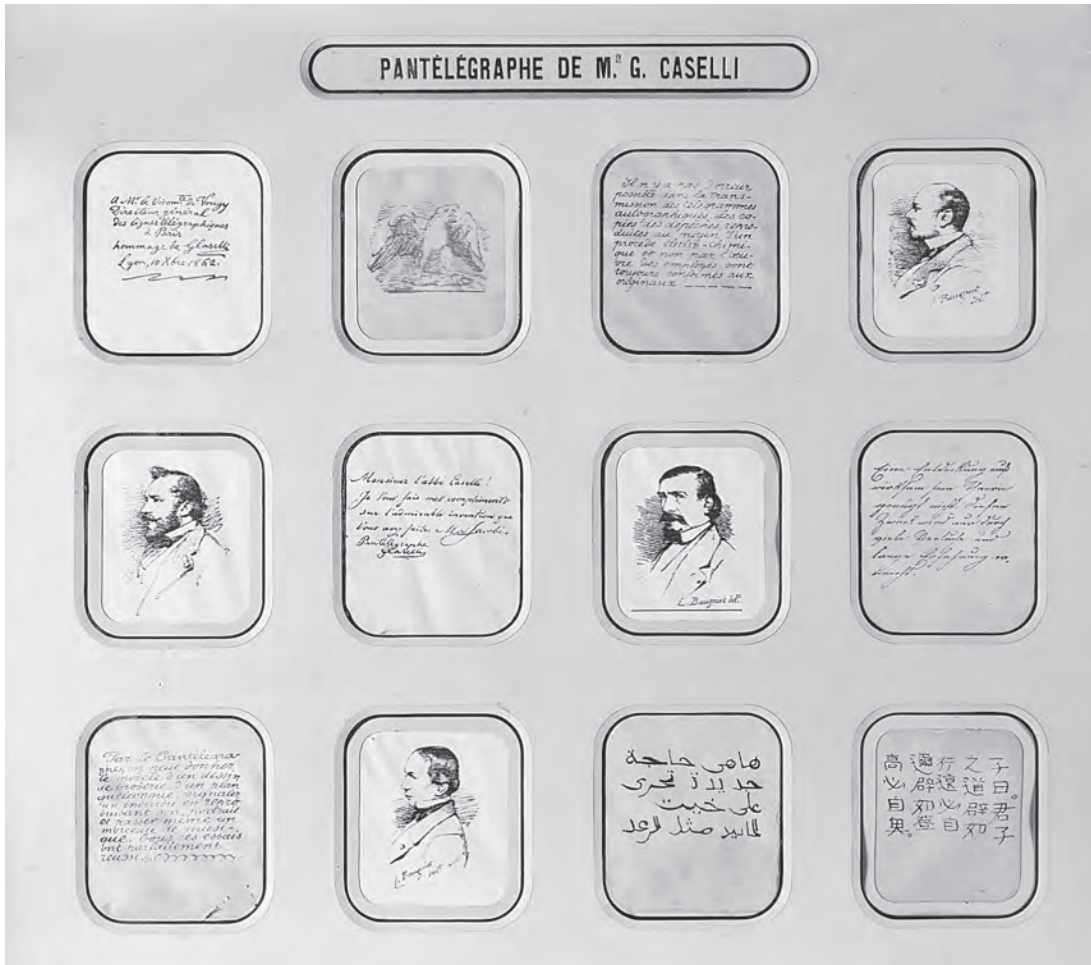 PANTÉLÉGRAPHE DE M.R G. CASELLI
A Mr le Vicomte de Vougy
Directeur général
des lignes télégraphiques
à Paris
hommage de G Caselli
Lyon, 10 Xbre 1862.
Il n'y a pas d'erreur
possible dans la trans-
mission des télégrammes
autographiques, des co-
pies des dépêches repro-
duites au moyen d'un
procédé électro-chimi-
que et non par l'œu-
vre des employés sont
toujours conformes aux
originaux.
L. Baugniet
Monsieur l'abbé Caselli!
Je Vous fais mes compliments
sur l'admirable invention que
Vous avez faite. M. Jacobi.
Pantélégraphe
GCaselli
L. Baugniet del.
Eine Entdeckung
wirksam sein
genügt nicht. Dieser
Zweck wird nur durch
viele Versuche und
lange Erfahrung er-
reicht.
Par le Pantélégra-
phe, on peut donner
le modèle d'un dessin
de broderie, d'un plan
quelconque, signaler
un individu en repro-
duisant son portrait
et passer même un
morceau de musi-
que. Tous ces essais
ont parfaitement
réussi.
L. Baugniet
حاجة
جديدة تجرى
على خبت
مثل الرعد
子曰。君子
之道辟如
行遠必自
邇辟如登
高必自卑。